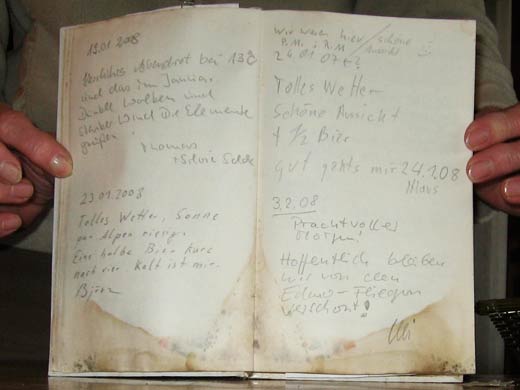 19.01.2008
Herrliches Abendrot bei 13°C
und das im Januar.
Dunkle Wolken und
starker Wind die Elemente
grüßen!
Thomas
+ Silvia
23.01.2008
Tolles Wetter, Sonne
pur Alpen riesig.
Eine halbe Bier kurz
nach vier. Kalt ist mir.
Björn
Wir waren hier / schöne
P.M. & R.M Aussicht
24.01.07
Tolles Wetter
Schöne Aussicht
+ 1/2 Bier
gut gehts mir 24.1.08
Klaus
3.2.08
Prachtvoller
Morgen!
Hoffentlich bleiben
wir von den
Fliegen
verschont!
Uli